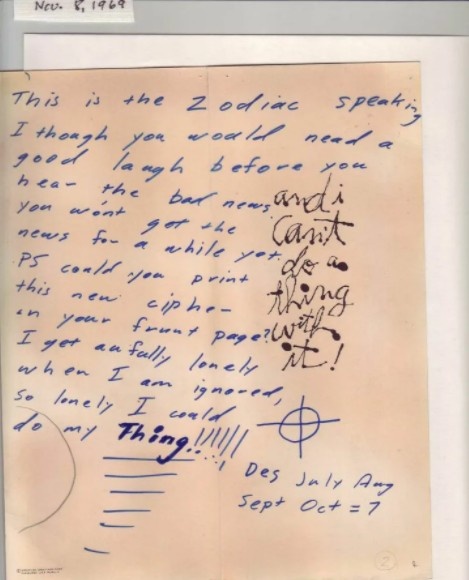 Nov. 8, 1969
This is the Zodiac speaking
I though you would need a
good laugh before you
hear the bad news
you won't get the
news for a while yet.
PS could you print
this new cipher
in your frunt page?
I get aufully lonely
when I am ignored,
so lonely I could
do my Thing!!!!!!
and i
can't
do a
thing
with
it!
Des July Aug
Sept Oct = 7
2